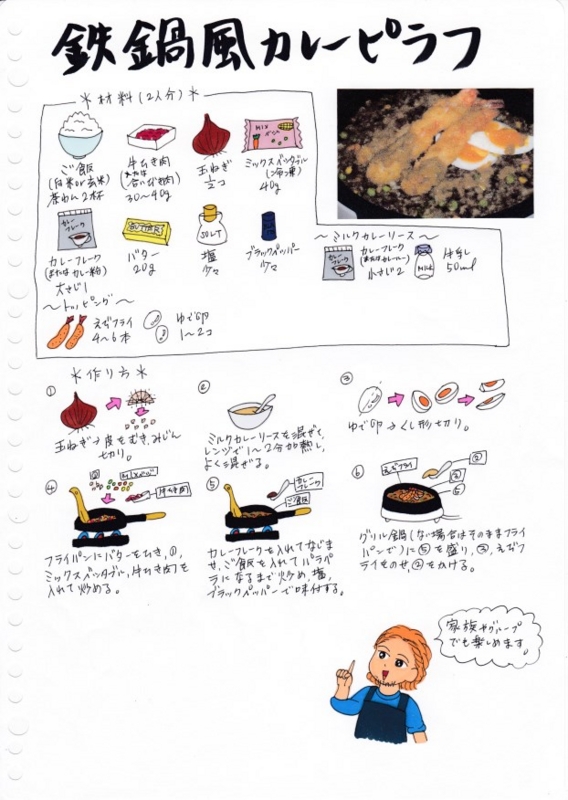 鉄鍋風カレーピラフ
＊材料(2人分)＊
ご飯
(白米or玄米)
茶わん2杯
牛ひき肉
(または
合いびき肉)
30〜40g
玉ねぎ
½コ
MIX
ミックスベジタブル
(冷凍)
40g
カレー
フレーク
カレーフレーク
(またはカレー粉)
大さじ1
BUTTER
バター
20g
SOLT
塩
少々
ブラックペッパー
少々
〜ミルクカレーソース〜
カレー
フレーク
カレーフレーク
小さじ2
MILK
牛乳
50ml
〜トッピング〜
えびフライ
4〜6本
ゆで卵
1〜2コ
＊作り方＊
①
玉ねぎ→皮をむき、みじん
切り。
②
ミルクカレーソースを混ぜて、
レンジで1〜2分加熱し、
よく混ぜる。
③
ゆで卵→くし形切り。
④
①
MIXベジ
牛ひき肉
フライパンにバターをひき、①、
ミックスベジタブル、牛ひき肉を
入れて炒める。
⑤
カレー
フレーク
ご飯
カレーフレークを入れてなじま
せ、ご飯を入れてパラパ
ラになるまで炒め、塩、
ブラックペッパーで味付する。
⑥
えびフライ
②
③
⑤
グリル鍋(ない場合はそのままフライ
パンで)に⑤を盛り、③、えびフ
ライをのせ、②をかける。
家族やグループ
でも楽しめます。